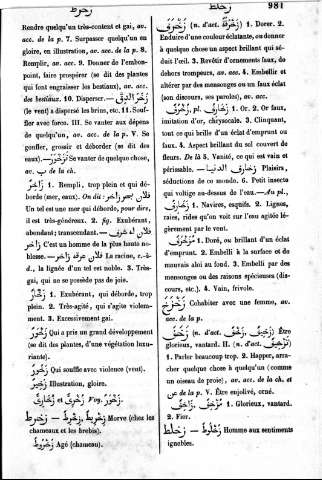 زخرط
زخلط
981
Rendre quelqu'un très-content et gai, av.
acc. de la p. 7. Surpasser quelqu'un en
gloire, en illustration, av. acc. de la p. 8.
Remplir, av. acc. 9. Donner de l'embon-
point, faire prospérer (se dit des plantes
qui font engraisser les bestiaux), av. acc.
des bestiaux. 10. Disperser.—
(le vent) a dispersé les brins, etc. 11. Souf-
fler avec force. III. Se vanter aux dépens
de quelqu'un, av. acc. de la p. V. Se
gonfler, grossir et déborder (se dit des
eaux).— Se vanter de quelque chose,
av. ب de la ch.
زاخر 1. Rempli, trop plein et qui dé-
borde (mer, eaux). On dit:
Un tel est une mer qui déborde, pour dire,
il est très-généreux. 2. fig. Exubérant,
abondant; transcendant.—
C'est un homme de la plus haute no-
blesse.— La racine, c.-à-
d., la lignée d'un tel est noble. 3. Très-
gai, qui ne se possède pas de joie.
1. Exubérant, qui déborde, trop
plein. 2. Très-agité, qui s'agite violem-
ment. 3. Excessivement gai.
Qui a pris un grand développement
(se dit des plantes, d'une végétation luxu-
riante).
Qui souffle avec violence (vent).
Illustration, gloire.
Voy.
زخرط — Morve (chez les
chameaux et les brebis).
Agé (chameau).
زخرف (n. d'act. زخرفة) 1. Dorer. 2.
Enduire d'une couleur éclatante, ou donner
à quelque chose un aspect brillant qui sé-
duit l'œil. 3. Revêtir d'ornements faux, de
dehors trompeurs, av. acc. 4. Embellir et
altérer par des mensonges ou un faux éclat
(son discours, ses paroles), av. acc.
زخرف, pl. زخارف 1. Or. 2. Or faux,
imitation d'or, chrysocale. 3. Clinquant,
tout ce qui brille d'un éclat d'emprunt ou
faux. 4. Aspect brillant du sol couvert de
fleurs. De là 5. Vanité, ce qui est vain et
périssable.—زخارف الدنيا Plaisirs,
séductions de ce monde. 6. Petit insecte
qui voltige au-dessus de l'eau.—Au pl.,
زخارف 1. Navires, esquifs. 2. Lignes,
raies, rides qu'on voit sur l'eau agitée lé-
gèrement par le vent.
مزخرف 1. Doré, ou brillant d'un éclat
d'emprunt. 2. Embelli à la surface et de
mauvais aloi au fond. 3. Embelli par des
mensonges ou des raisons spécieuses (dis-
cours, etc.). 4. Vain, frivole.
Cohabiter avec une femme, av.
acc. de la p.
Être
glorieux, vantard. II. (n. d'act.
1. Parler beaucoup trop. 2. Happer, arra-
cher quelque chose à quelqu'un (comme
un oiseau de proie), av. acc. de la ch. et
عن de la p. V. Être enjolivé, orné.
1. Glorieux, vantard.
2. Fier.
زخلط — Homme aux sentiments
ignobles.